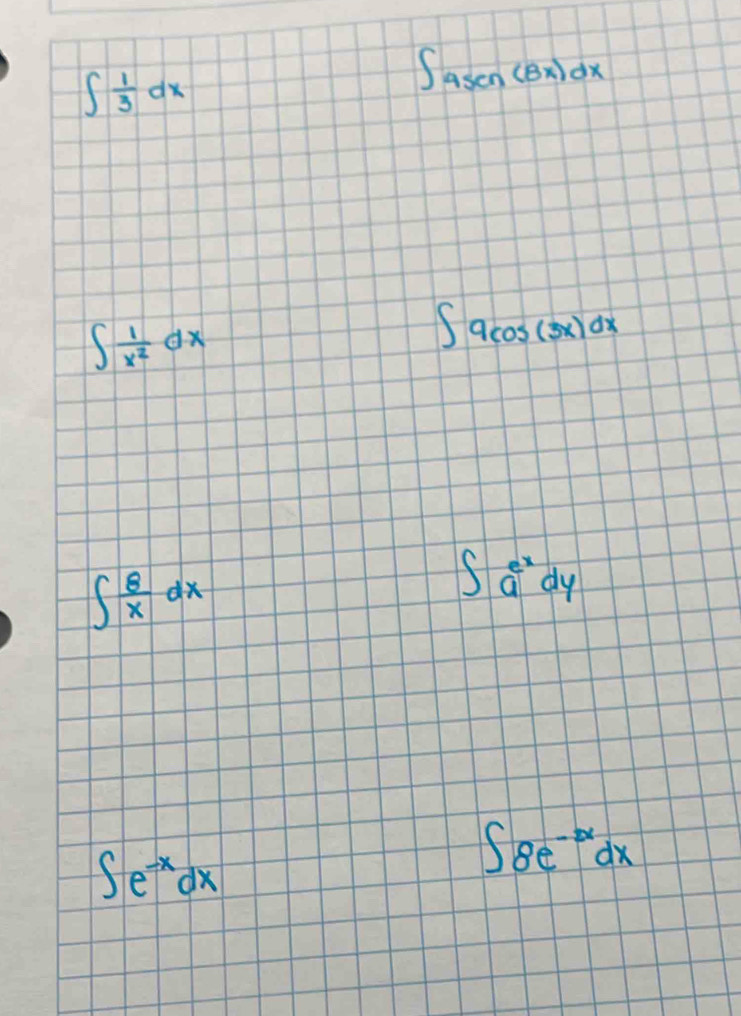 ∫ 1/3 dx
∫ 9sen(8x)dx
∫ 1/x² dx
∫ 9cos(3x)dx
∫ 8/x dx
∫ a^(e^x) dy
∫ e^(-x) dx
∫ 8e dx